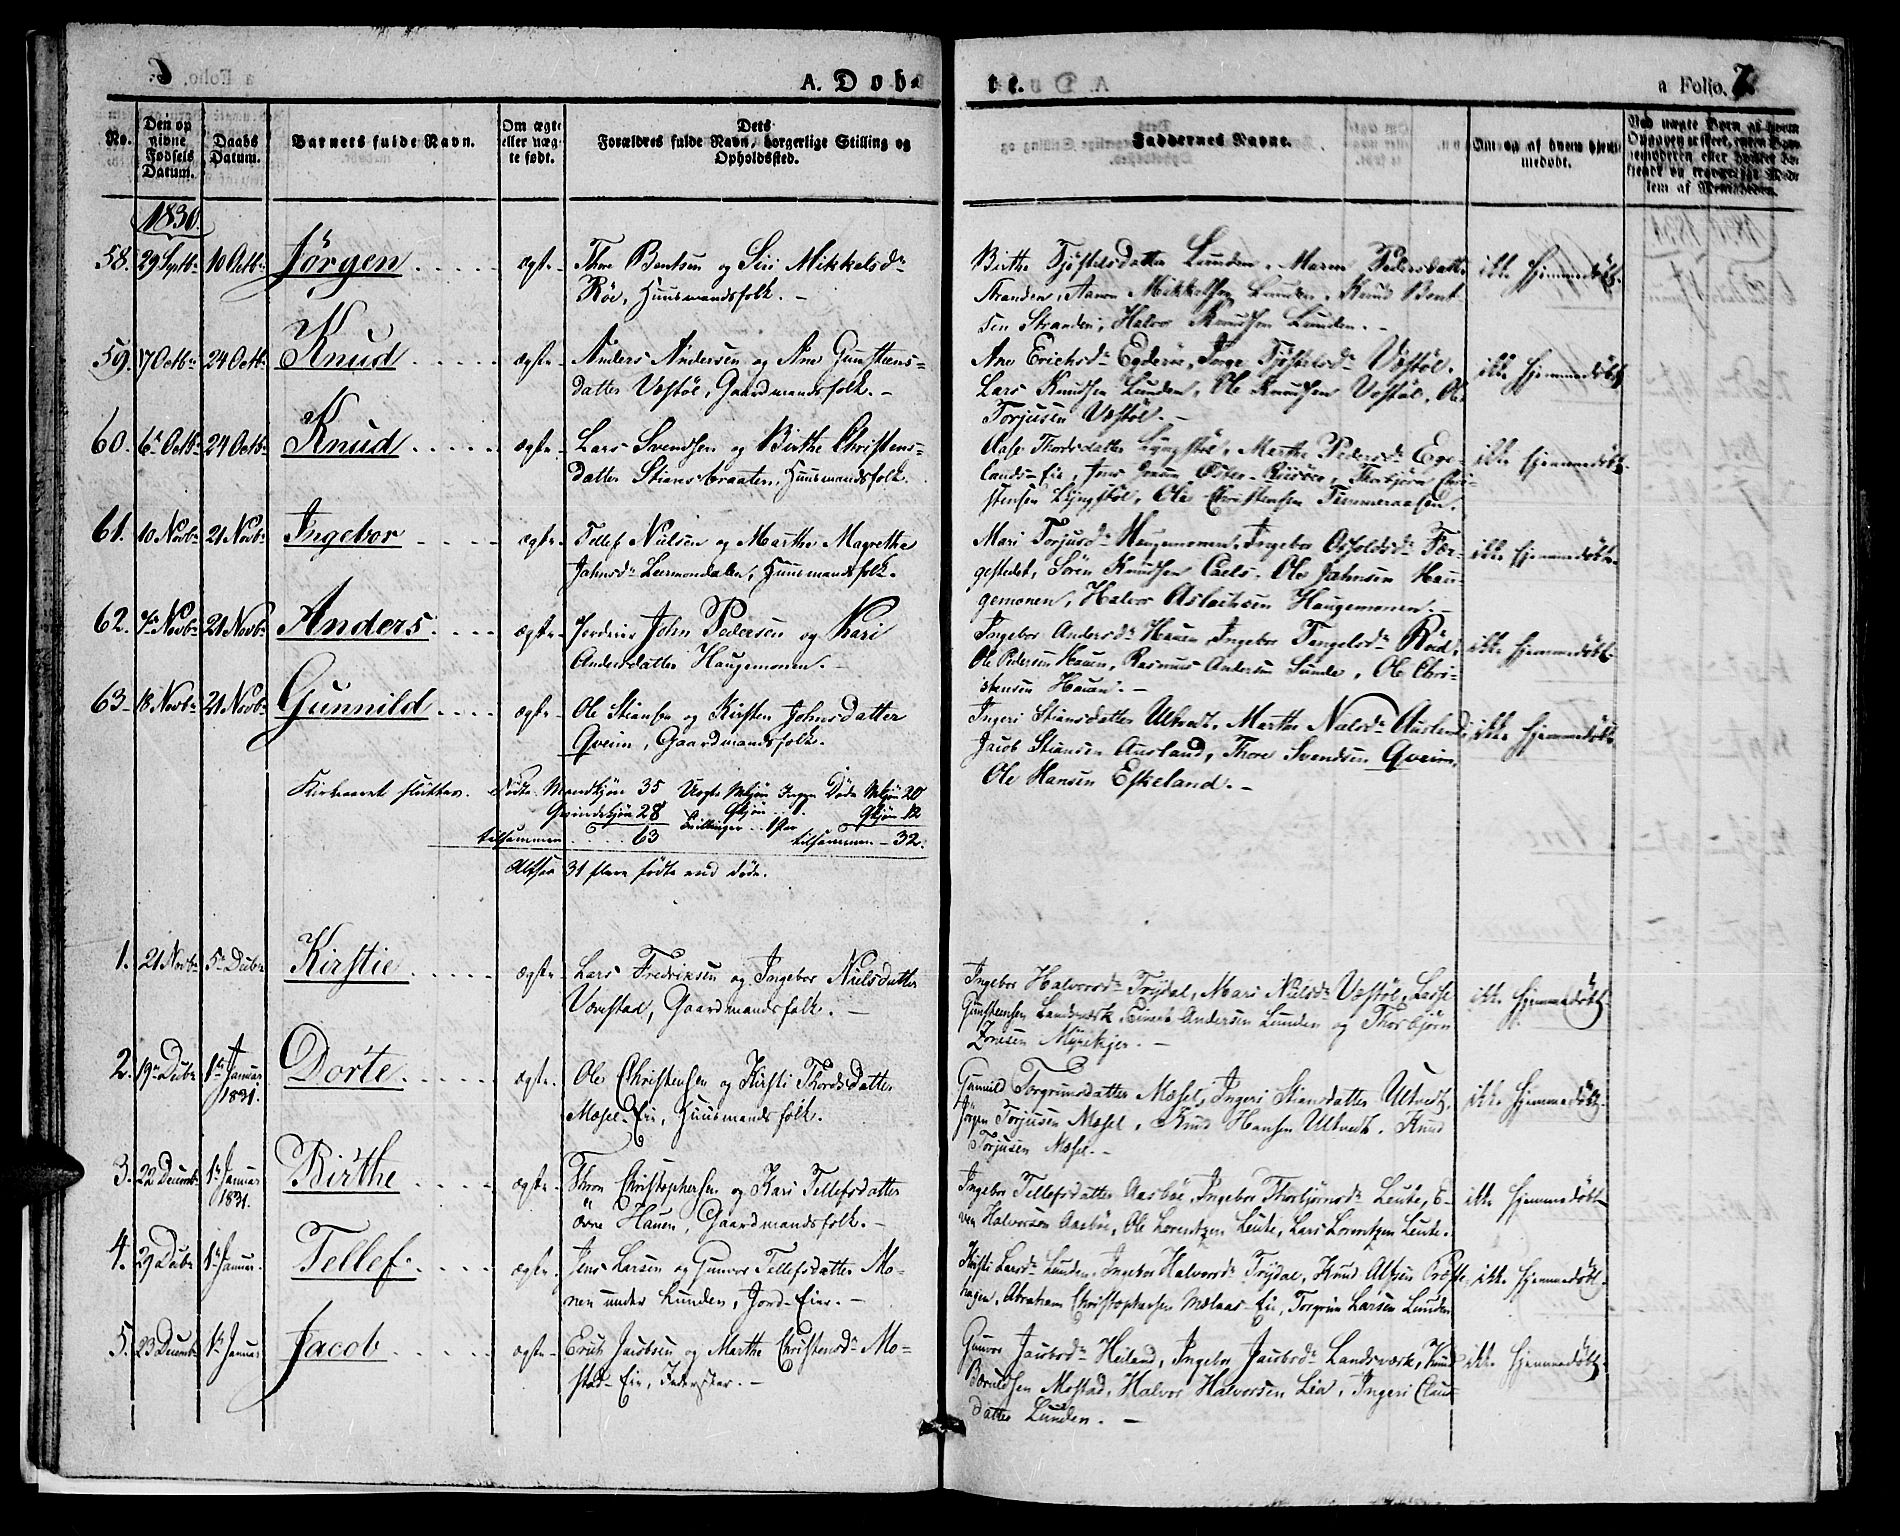 6.
A. Døb-
No.
Den op
givne
Fødsels
Datum.
Daabs
Datum.
Barnets fulde Navn.
Om ægte
eller uæg-
te født.
Dets
Forældres fulde Navn, borgerlige Stilling og
Opholdssted.
1830.
58. 29 Septbr 10 Octbr Jörgen ægte
Thore Bentsen og Siri Mikkelsdr
Röe, Huusmandsfolk.
59. 17 Octbr 24 Octbr Knud ægte
Anders Andersen og Ane Gunsteens-
datter Vestöl, Gaardmandsfolk.
60. 6te Octbr 24 Octbr Knud ægte
Lars Svendsen og Birthe Christens-
datter Stiansbraaten, Huusmandsfolk.
61. 10 Novbr 21 Novbr Ingebor ægte
Tellef Nielsen og Marthe Magrethe
Jahnsdr Leermondalen, Huusmandsfolk.
62. 7de Novbr 21 Novbr Anders ægte
Jordeier John Pedersen og Kari
Andersdatter Haugemonen.
63. 18 Novbr 21 Novbr Gunnild ægte
Ole Stiansen og Kirsten Johnsdatter
Qveim, Gaardmandsfolk.
Kirkeaaret sluttes. Födte Mandkjön 35 Uægte Mkjön Ingen Döde Mkjön 20
Qvindekjön 28 Qkjön 1 Qkjön 12
tilsammen 63 Tvillinger 1 Par tilsammen 32.
Altsaa 31 flere födte end döde.
1. 21 Novbr 5te Decbr Kirstie ægte
Lars Fredriksen og Ingebor Nielsdatter
Vovestad, Gaardmandsfolk.
2. 19de Decbr 1ste Januar Dorte ægte
1831.
Ole Christensen og Kirsti Thordsdatter
Mosel-Eie, Huusmandsfolk.
3. 22 Decemb 1ste Januar Birthe ægte
1831.
Thron Christophersen og Kari Tellefsdatter
övre Hauen, Gaardmandsfolk.
4. 29 Decbr 1ste Januar Tellef ægte
Jens Larsen og Gunvor Tellefsdatter Mo-
nen under Lunden, Jord-Eier.
5. 23 Decemb 1ste Januar Jacob ægte
Erik Jacobsen og Marthe Christensdr Mo-
stad-Eie, Inderster.
te.
a Folio. 7
Faddernes Navne.
Om og af hvem hjem-
medøbt.
Birthe Tjöstelsdatter Lunden, Maren Pedersdatter
Stranden, Aanon Mikkelsen Lunden, Knud Bent-
sen Stranden, Halvor Knudsen Lunden.
ikke hjemmedöbt.
Ane Erichsdr Egderöe, Jorge Tjöstelsdr Vestöl,
Lars Knudsen Lunden, Ole Knudsen Vestöl, Ole
Torjusen Vestöl.
ikke hjemmedöbt
Aase Thordsdatter Lyngstöl, Marthe Pedersdr Ege-
lands-Eie, Jens Östen Riisöe, Thorbjörn Chri-
stensen Lyngstöl, Ole Christensen Tömmeraasen.
ikke hjemmedöbt.
Mari Torjusdr Haugemonen, Ingebor Osfoldsdr Fær-
gestedet, Sören Knudsen Caels, Ole Jahnsen Hau-
gemonen, Halvor Aslachsen Haugemonen.
ikke hjemmedöbt.
Ingebor Andersdr Hauen, Ingebor Tengelsdr Röed,
Ole Pedersen Hauen, Rasmus Andersen Sunde, Ole Chri-
stensen Hauen.
ikke hjemmedöbt.
Ingeri Stiansdatter Ultvedt, Marthe Nalsdr Ausland,
Jacob Stiansen Ausland, Thore Svendsen Qveim,
Ole Hansen Eskeland.
ikke hjemmedöbt
Ingebor Halvorsdr Trydal, Mari Nielsdr Vestöl, Lasse
Gunstensen Landsverk, Andersen Lunden og Thorbjörn
Zonesen Myrekjær.
ikke hjemmedöbt.
Gunnild Torgrimsdatter Mosel, Ingeri Stiansdatter Ultvedt,
Jörgen Torjusen Mosel, Knud Hansen Ultvedt, Knud
Torjusen Mosel.
ikke hjemmedöbt.
Ingebor Tellefsdatter Aasböe, Ingebor Thorbjörnsdr Leute, E-
ven Halvorsen Aasböe, Ole Lorentzen Leute, Lars Lorentzen Leute.
ikke hjemmedöbt
Kirsti Larsdr Lunden, Ingebor Halvorsdr Trydal, Knud Alfsen Præste-
hagen, Abraham Christophersen Molaas-Eie, Torgrim Larsen Lunden
ikke hjemmedöbt.
Gunvor Jacobsdr Heiland, Ingebor Jacobsdr Landsverk, Knud
Beruldsen Mostad, Halvor Halvorsen Lia, Ingeri Claus-
datter Lunden.
ikke hjemmedöbt.